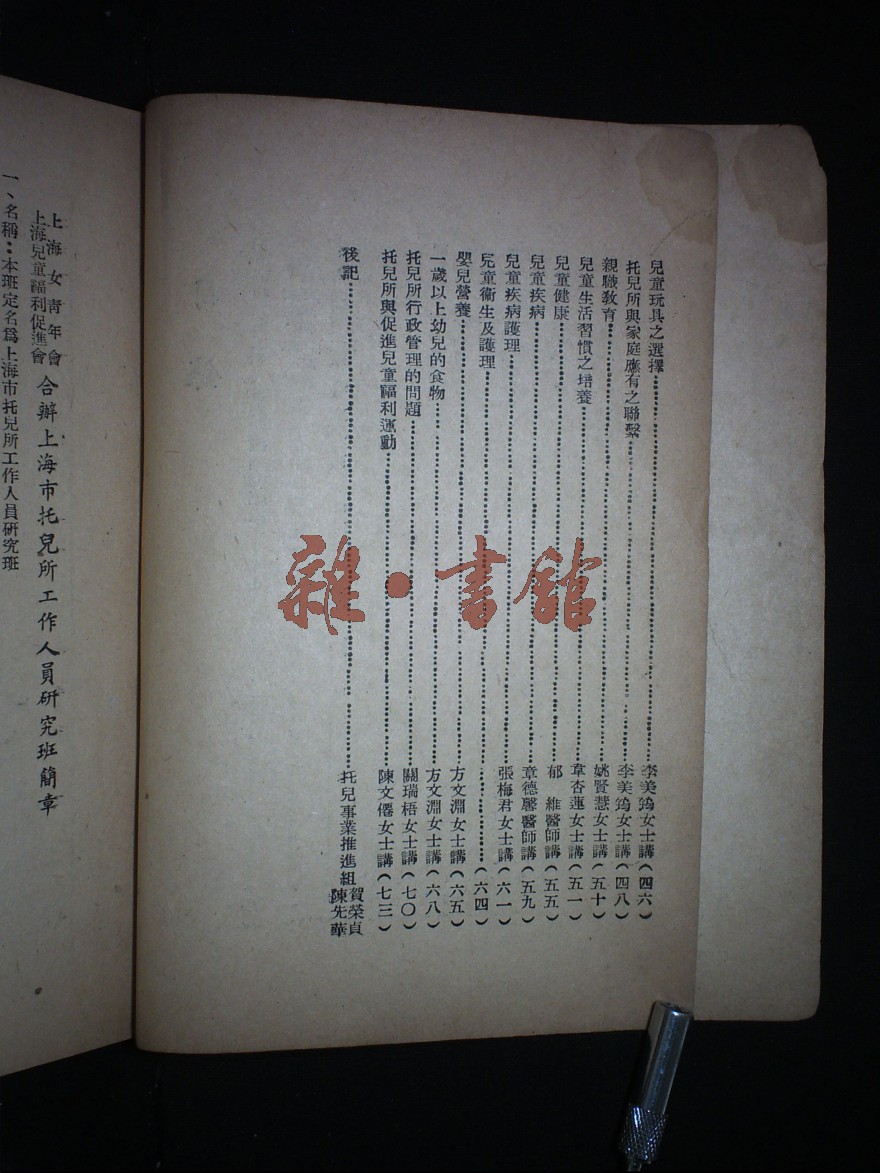 兒童玩具之選擇……李美筠女士講(四六)
托兒所與家庭應有之聯繫……李美筠女士講(四八)
親職教育……姚賢慧女士講(五十)
兒童生活習慣之培養……韋杏蓮女士講(五一)
兒童健康……郁　維醫師講(五五)
兒童疾病……章德馨醫師講(五九)
兒童疾病護理……張梅君女士講(六一)
兒童衛生及護理……(六四)
嬰兒營養……方文淵女士講(六五)
一歲以上幼兒的食物……方文淵女士講(六八)
托兒所行政管理的問題……關瑞梧女士講(七〇)
托兒所與促進兒童福利運動……陳文僊女士講(七三)
後記……托兒事業推進組賀榮貞
陳先華
上海女青年會
上海兒童福利促進會
合辦上海市托兒所工作人員研究班簡章
一、名稱：本班定名爲上海市托兒所工作人員研究班
雜·書館